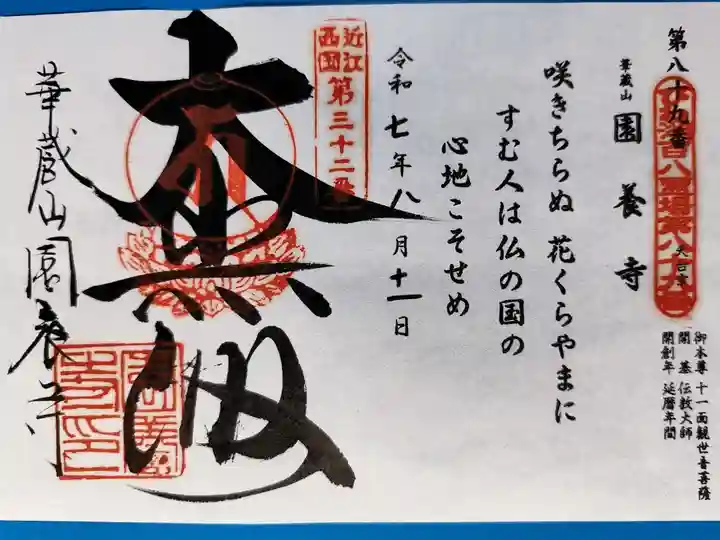 第八十九番
華蔵山
園養寺
天台宗
御本尊 十一面観世音菩薩
開 基 伝教大師
開創年 延暦年間
咲きちらぬ 花くらやまに
すむ人は仏の国の
心地こそせめ
令和七年八月十一日
近江
西国
第三十二番
大悲殿
華蔵山園養寺